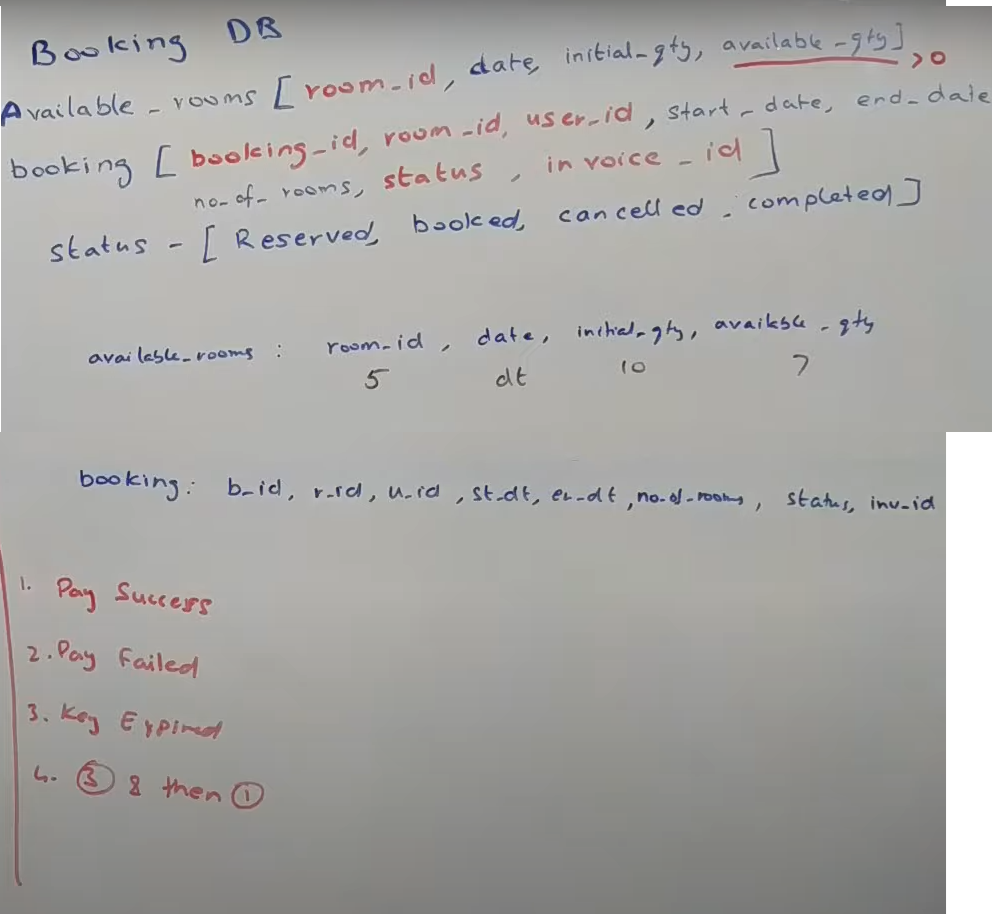 Booking DB
Available_rooms [room_id, date, initial_qty, available_qty] >0
booking [booking_id, room_id, user_id, start_date, end_date
no_of_rooms, status, invoice_id]
status - [Reserved, booked, cancelled, completed]
available_rooms : room_id, date, initial_qty, available_qty
5 dt 10 7
booking: b_id, r_id, u_id, st_dt, en_dt, no_of_rooms, status, inv_id
1. Pay Success
2. Pay Failed
3. Key Expired
4. ③ & then ①